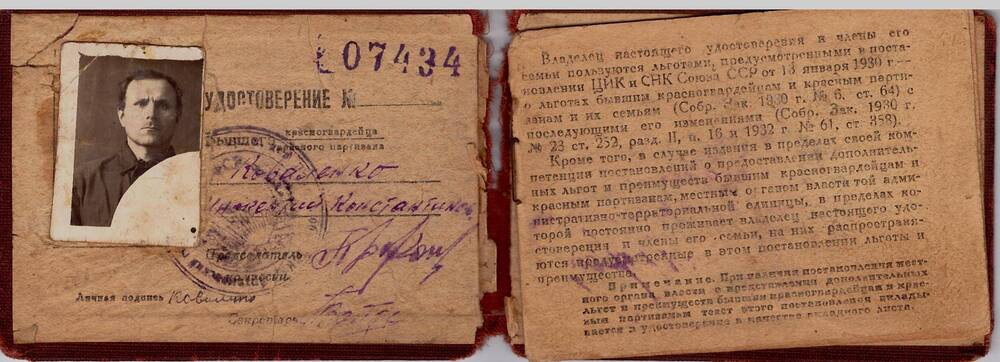 L07434
УДОСТОВЕРЕНИЕ №
Бывшего красногвардейца
красного партизана
Коваленко
Константинов
Председатель
комиссии
Личная подпись Коваленко
Секретарь
Владелец настоящего удостоверения и члены его
семьи пользуются льготами, предусмотренными в поста-
новлении ЦИК и СНК Союза ССР от 13 января 1930 г—
о льготах бывшим красногвардейцам и красным парти-
занам и их семьям (Собр. Зак. 1930 г. № 6. ст. 64) с
последующими его изменениями (Собр. Зак. 1930 г.
№ 23 ст. 252, разд. II, п. 16 и 1932 г. № 61, ст 358).
Кроме того, в случае издания в пределах своей ком-
петенции постановлений о предоставлении дополнитель-
ных льгот и преимуществ бывшим красногвардейцам и
красным партизанам, местным органом власти той адми-
нистративно-территориальной единицы, в пределах ко-
торой постоянно проживает владелец настоящего удо-
стоверения и члены его семьи, на них распространя-
ются предусмотренные в этом постановлении льготы и
преимущества.
Примечание. При наличии постановления мест-
ного органа власти о предоставлении дополнительных
льгот и преимуществ бывшим красногвардейцам и крас-
ным партизанам текст этого постановления вклады-
вается в удостоверение в качестве вкладного листа.